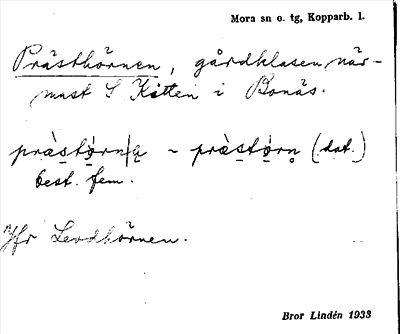 Mora sn o. tg, Kopparb. l.
Prästhörnen, gårdklasen när-
mast S Kitten i Bonäs.
prästörn|a ~ prästörn (dat.)
best. fem.
Jfr Levdhörnen.
Bror Lindén 1933